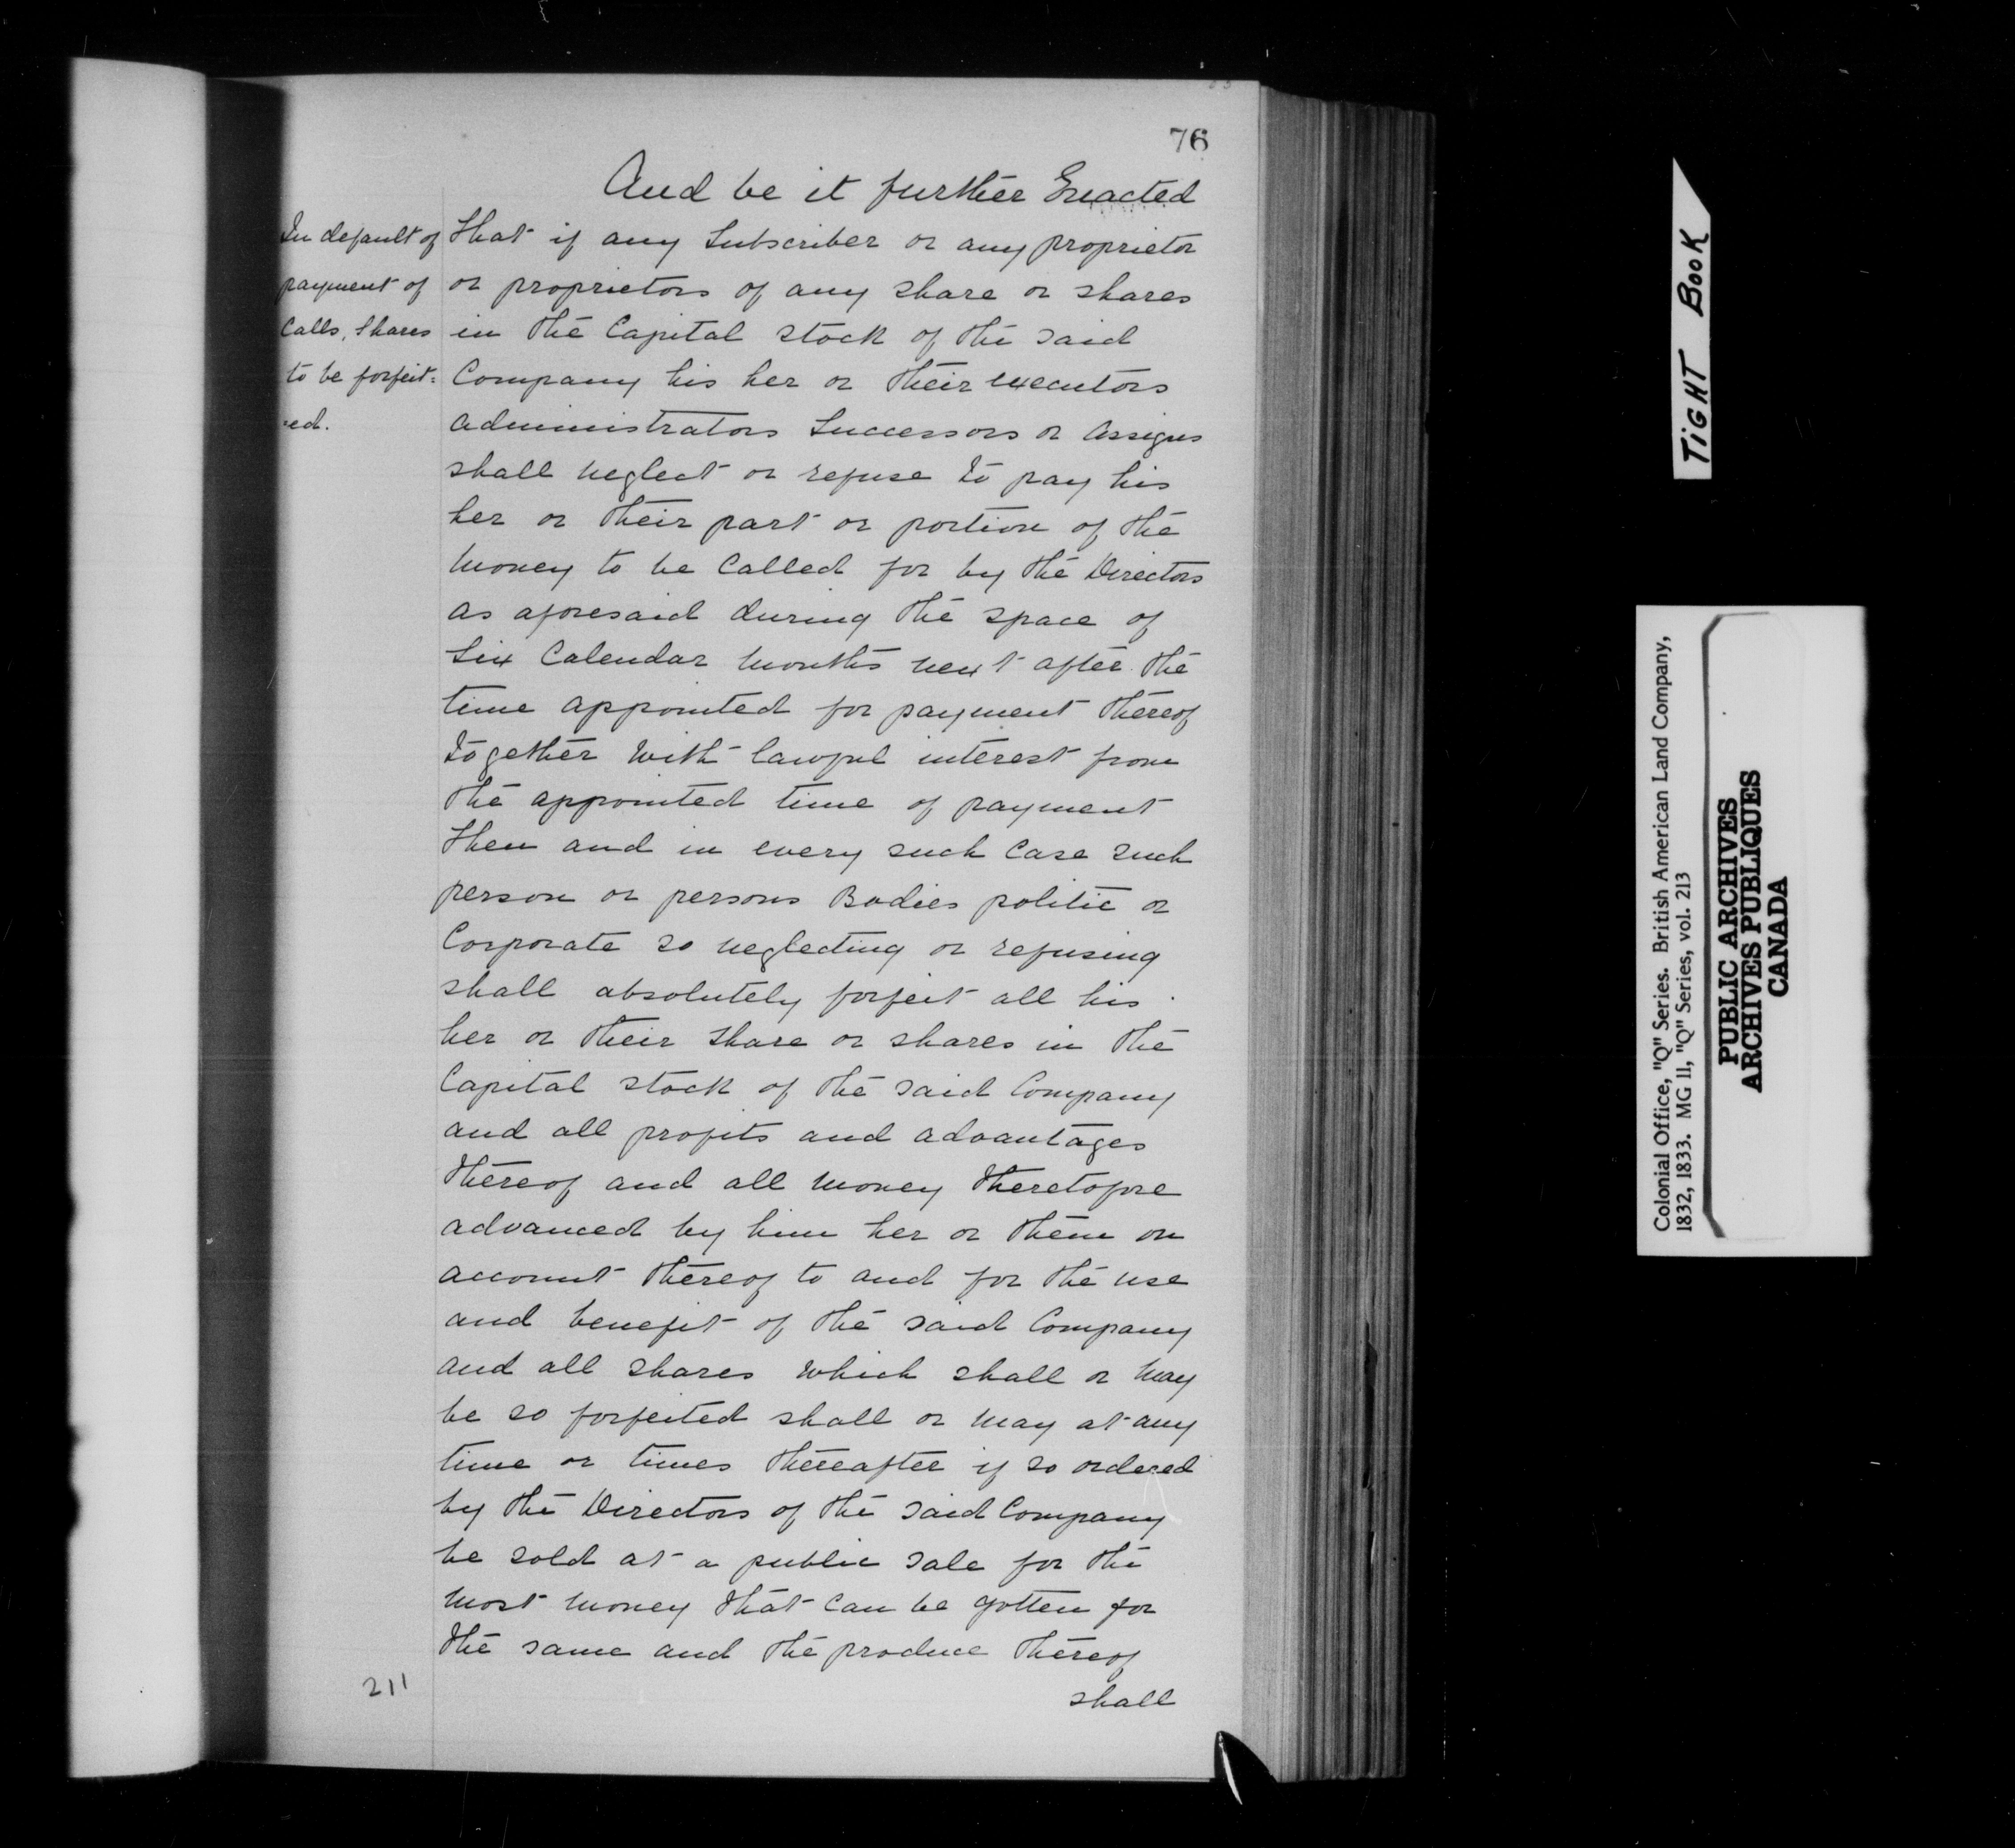 76
And be it further Enacted
In default of
payment of
Calls, Shares
to be forfeit=
=ed.
that if any Subscriber or any proprietor
or proprietors of any share or shares
in the Capital stock of the said
Company his her or their executors
administrators Successors or assigns
shall neglect or refuse to pay his
her or their part or portion of the
money to be Called for by the Directors
as aforesaid during the space of
Six Calendar months next after the
time appointed for payment thereof
together with lawful interest from
the appointed time of payment
then and in every such Case such
person or persons Bodies politic or
Corporate so neglecting or refusing
shall absolutely forfeit all his
her or their share or shares in the
Capital stock of the said Company
and all profits and advantages
thereof and all money theretofore
advanced by him her or them on
account thereof to and for the use
and benefit of the said Company
and all shares which shall or may
be so forfeited shall or may at any
time or times thereafter if so ordered
by the Directors of the said Company
be sold at a public sale for the
most money that can be gotten for
the same and the produce thereof
shall
211
TIGHT BOOK
Colonial Office, "Q" Series. British American Land Company,
1832, 1833. MG 11, "Q" Series, vol. 213
PUBLIC ARCHIVES
ARCHIVES PUBLIQUES
CANADA